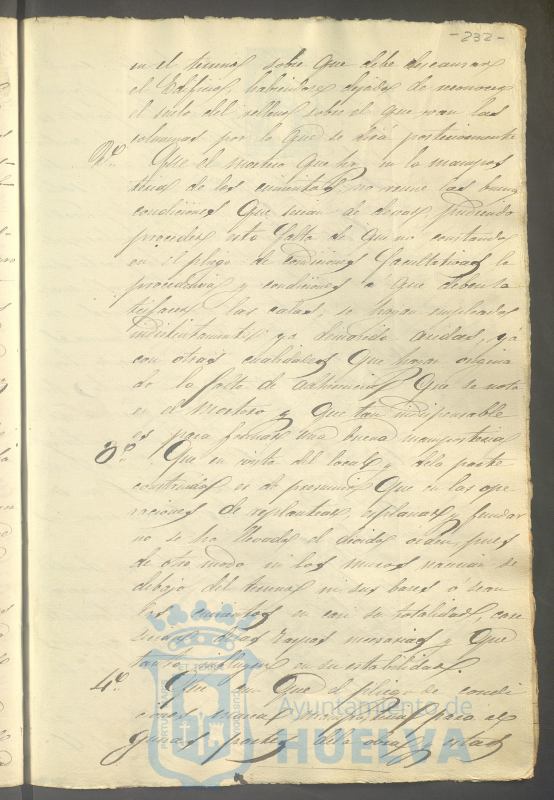 -232-
en el terreno sobre que debe descansar
el Edificio, habiendose dejado de reconocer
el suelo del relleno sobre el que van las
columnas por lo que se dirá posteriormente
2º Que el mortero que hay en la mampos
teria de los cimientos no reune las buenas
condiciones que serian de desear, pudiendo
proceder esto falta de que no constando
en el pliego de condiciones facultativas la
procedencia y condiciones a que deben sa
tisfacer las cales, se hayan empleado
indistintamente ya demasiado crudas, ya
con otras cualidades que hayan origina
do la falta de adherencia que se nota
en el mortero y que tan indispensable
es para formar una buena mamposteria
3º Que en vista del local y de la parte
construida es de presumir que en las ope
raciones de replantear, esplanar y fundar
no se ha llevado el devido orden, pues
de otro modo ni los muros nacerian
debajo del terreno ni sus bases ó sean
los cimientos en casi su totalidad, care
cerian de las zarpas necesarias y que
tanto influyen en su estabilidad.
4º Que sin que el pliego de condi
ciones marca mamposteria para al
gunas partes de la obra y estas
Ayuntamiento de
HUELVA